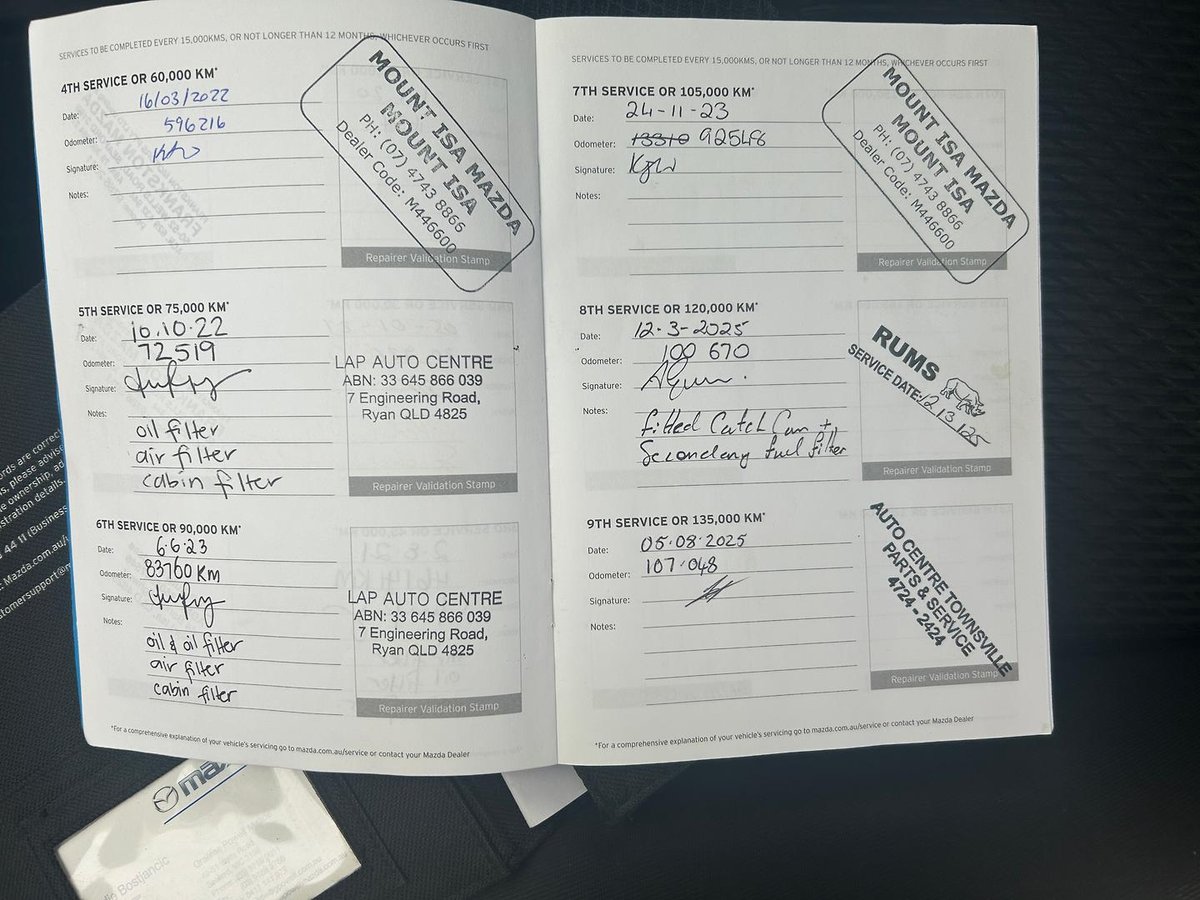 SERVICES TO BE COMPLETED EVERY 15,000KMS, OR NOT LONGER THAN 12 MONTHS, WHICHEVER OCCURS FIRST
4TH SERVICE OR 60,000 KM*
Date: 16/03/2022
Odometer: 596216
Signature:
Notes:
MOUNT ISA MAZDA
MOUNT ISA
PH: (07) 4743 8866
Dealer Code: M446600
Repairer Validation Stamp
5TH SERVICE OR 75,000 KM*
Date: 10.10.22
Odometer: 72,519
Signature:
Notes:
oil filter
air filter
cabin filter
LAP AUTO CENTRE
ABN: 33 645 866 039
7 Engineering Road,
Ryan QLD 4825
Repairer Validation Stamp
6TH SERVICE OR 90,000 KM*
Date: 6.6.23
Odometer: 83760 Km
Signature:
Notes:
oil & oil filter
air filter
cabin filter
LAP AUTO CENTRE
ABN: 33 645 866 039
7 Engineering Road,
Ryan QLD 4825
Repairer Validation Stamp
*For a comprehensive explanation of your vehicle's servicing go to mazda.com.au/service or contact your Mazda Dealer
SERVICES TO BE COMPLETED EVERY 15,000KMS, OR NOT LONGER THAN 12 MONTHS, WHICHEVER OCCURS FIRST
7TH SERVICE OR 105,000 KM*
Date: 24-11-23
Odometer: 13310 92548
Signature:
Notes:
MOUNT ISA MAZDA
MOUNT ISA
PH: (07) 4743 8866
Dealer Code: M446600
Repairer Validation Stamp
8TH SERVICE OR 120,000 KM*
Date: 12-3-2025
Odometer: 100 670
Signature:
Notes:
fitted Catch Can +
Secondary fuel filter
RUMS
SERVICE DATE: 12/3/25
Repairer Validation Stamp
9TH SERVICE OR 135,000 KM*
Date: 05.08.2025
Odometer: 107.048
Signature:
Notes:
AUTO CENTRE TOWNSVILLE
PARTS & SERVICE
4724 - 2424
Repairer Validation Stamp
*For a comprehensive explanation of your vehicle's servicing go to mazda.com.au/service or contact your Mazda Dealer
Bostjancic